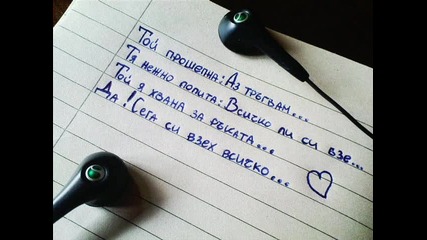 Той прошепна: Аз тръгвам...
Тя нежно попита: Всичко ли си взе...
Той я хвана за ръката...
Да! Сега си взех всичко...